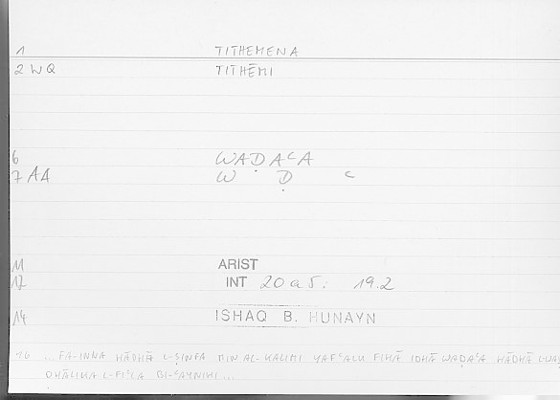 1 TITHEMENA
2 WQ TITHĒMI
6 WAḌAᶜA
7 AA W Ḍ ᶜ
11 ARIST
12 INT 20 a 5. 19.2
14 ISHAQ B. HUNAYN
16 ... FA-INNA HĀDHĀ L-ṢINFA MIN AL-KALIMI YAFᶜALU FĪHĀ IDHĀ WAḌAᶜA HĀDHĀ
DHĀLIKA L-FIᶜLA BI-ᶜAYNIHI ...